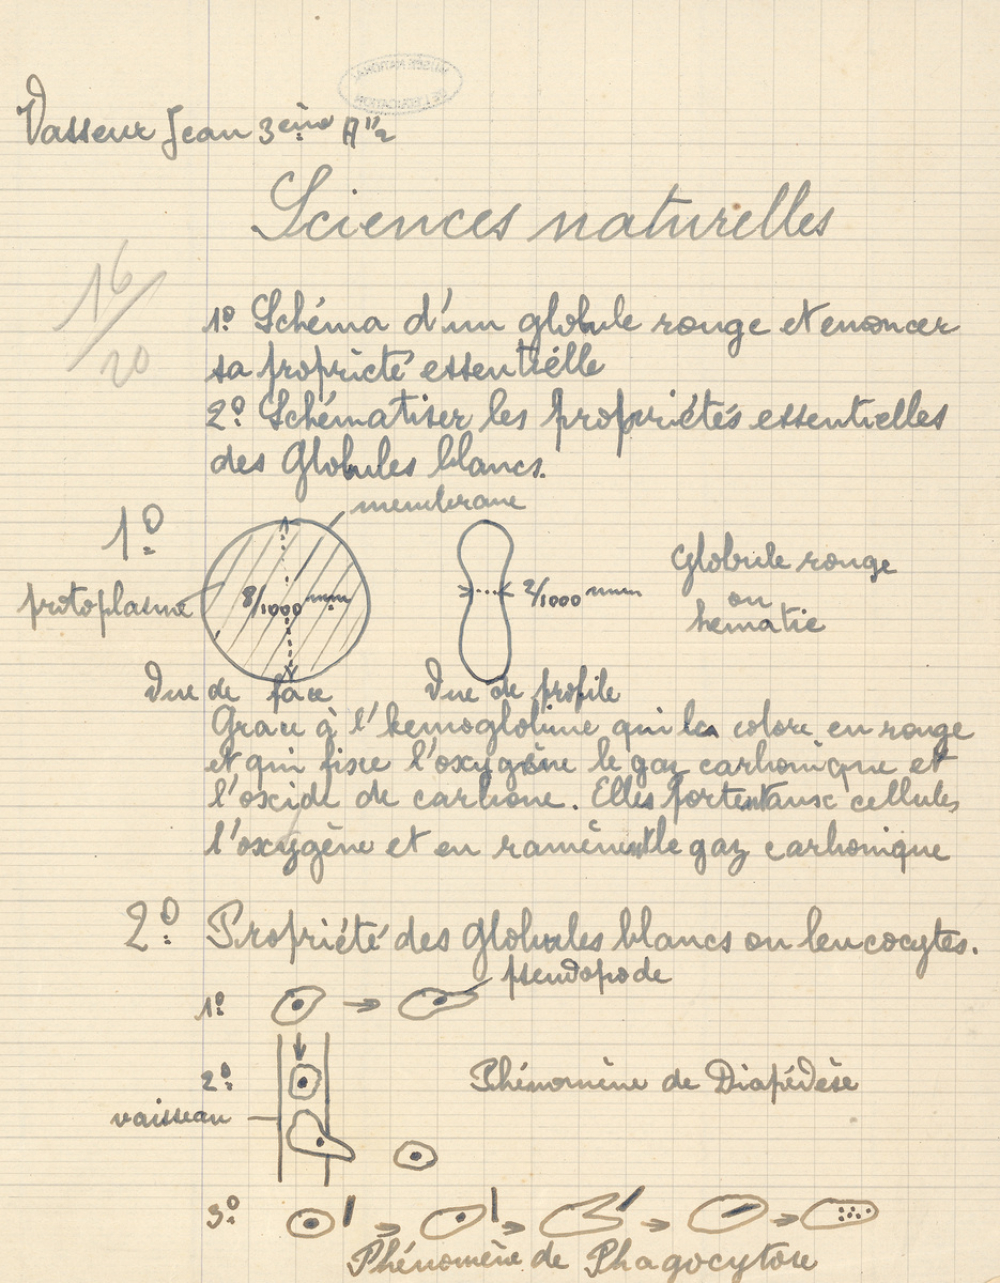 Vasseur Jean 3ème A''2
Sciences naturelles
16/20
1º Schéma d'un globule rouge et enoncer
sa propriété essentielle
2º Schématiser les propriétés essentielles
des Globules blancs.
membrane
1º
protoplasme
8/1000 mm
2/1000 mm
Globule rouge
ou
hematie
Vue de face
Vue de profile
Grace à l'hemoglobine qui les colore en rouge
et qui fixe l'oxygène le gaz carbonique et
l'oxide de carbone. Elles portent aux cellules
l'oxygène et en ramènent le gaz carbonique
2º Propriété des Globules blancs ou leucocytes.
pseudopode
1º
2º
Phénomène de Diapédèse
vaisseau
3º
Phénomène de Phagocytose